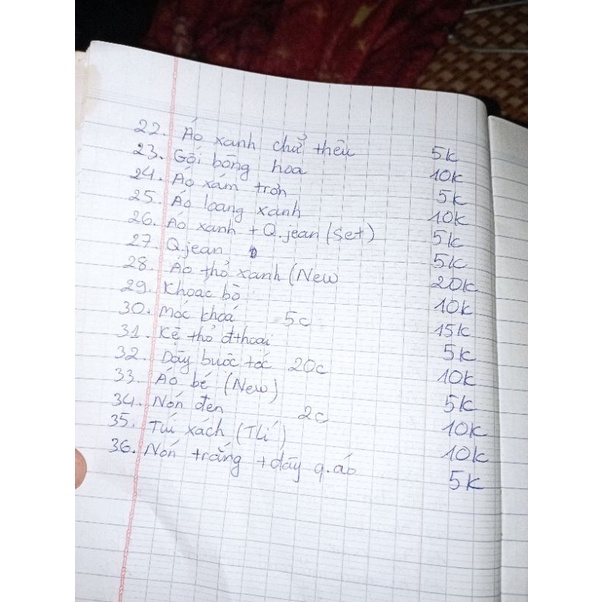 22. Áo xanh chữ thêu 5k
23. Gối bông hoa 10k
24. Áo xám trơn 5k
25. Áo loang xanh 10k
26. Áo xanh + Q.jean (Set) 5k
27. Q.jean 5k
28. Áo thỏ xanh (New 20k
29. Khoac bò 10k
30. Móc khoá 5c 15k
31. Kệ thỏ đthoại 5k
32. Dây buộc tóc 20c 10k
33. Áo bé (New) 5k
34. Nón đen 2c 10k
35. Túi xách (TLí) 10k
36. Nón trắng + dây q.áo 5k